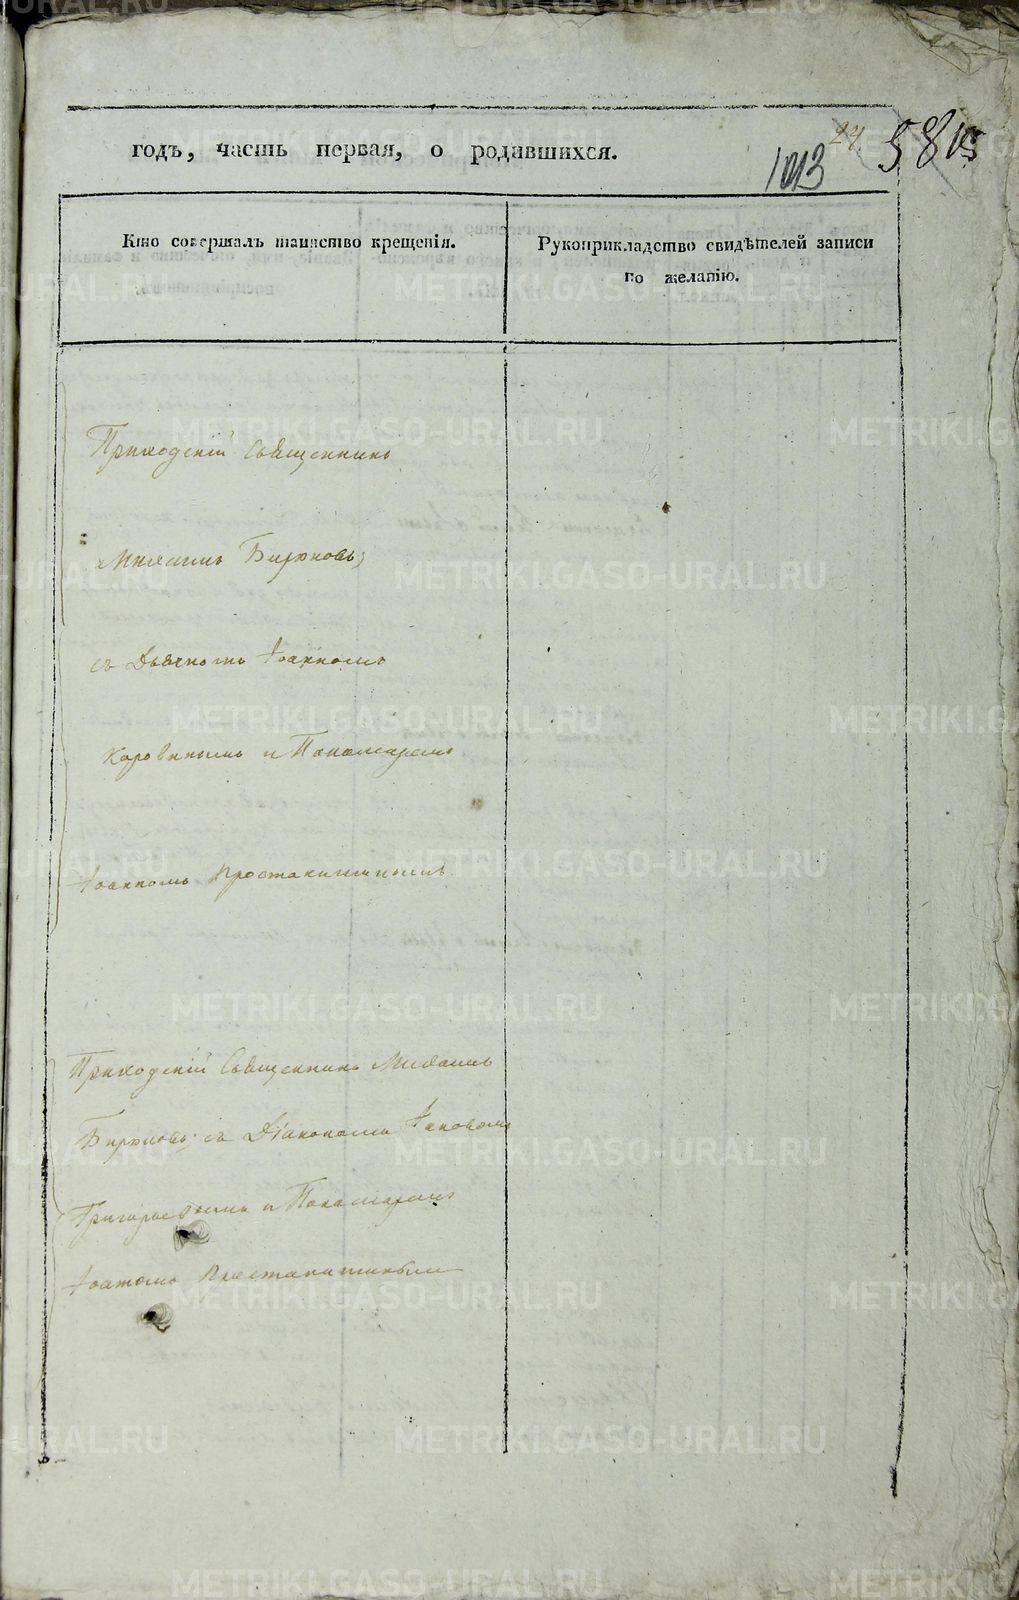 годъ, часть первая, о родившихся.
24
1013
Кто совершалъ таинство крещенія.
Рукоприкладство свидѣтелей записи
по желанію.
Приходскій Священникъ
Михаилъ Бирюковъ;
съ Дьячкомъ Іоанномъ
Коровинымъ и Пономаремъ
Іоанномъ Простакишинымъ
Приходскій Священникъ Михаилъ
Бирюковъ; съ Діакономъ Іаковомъ
Григорьевымъ и Пономаремъ
Іоанномъ
METRIKI.GASO-URAL.RU